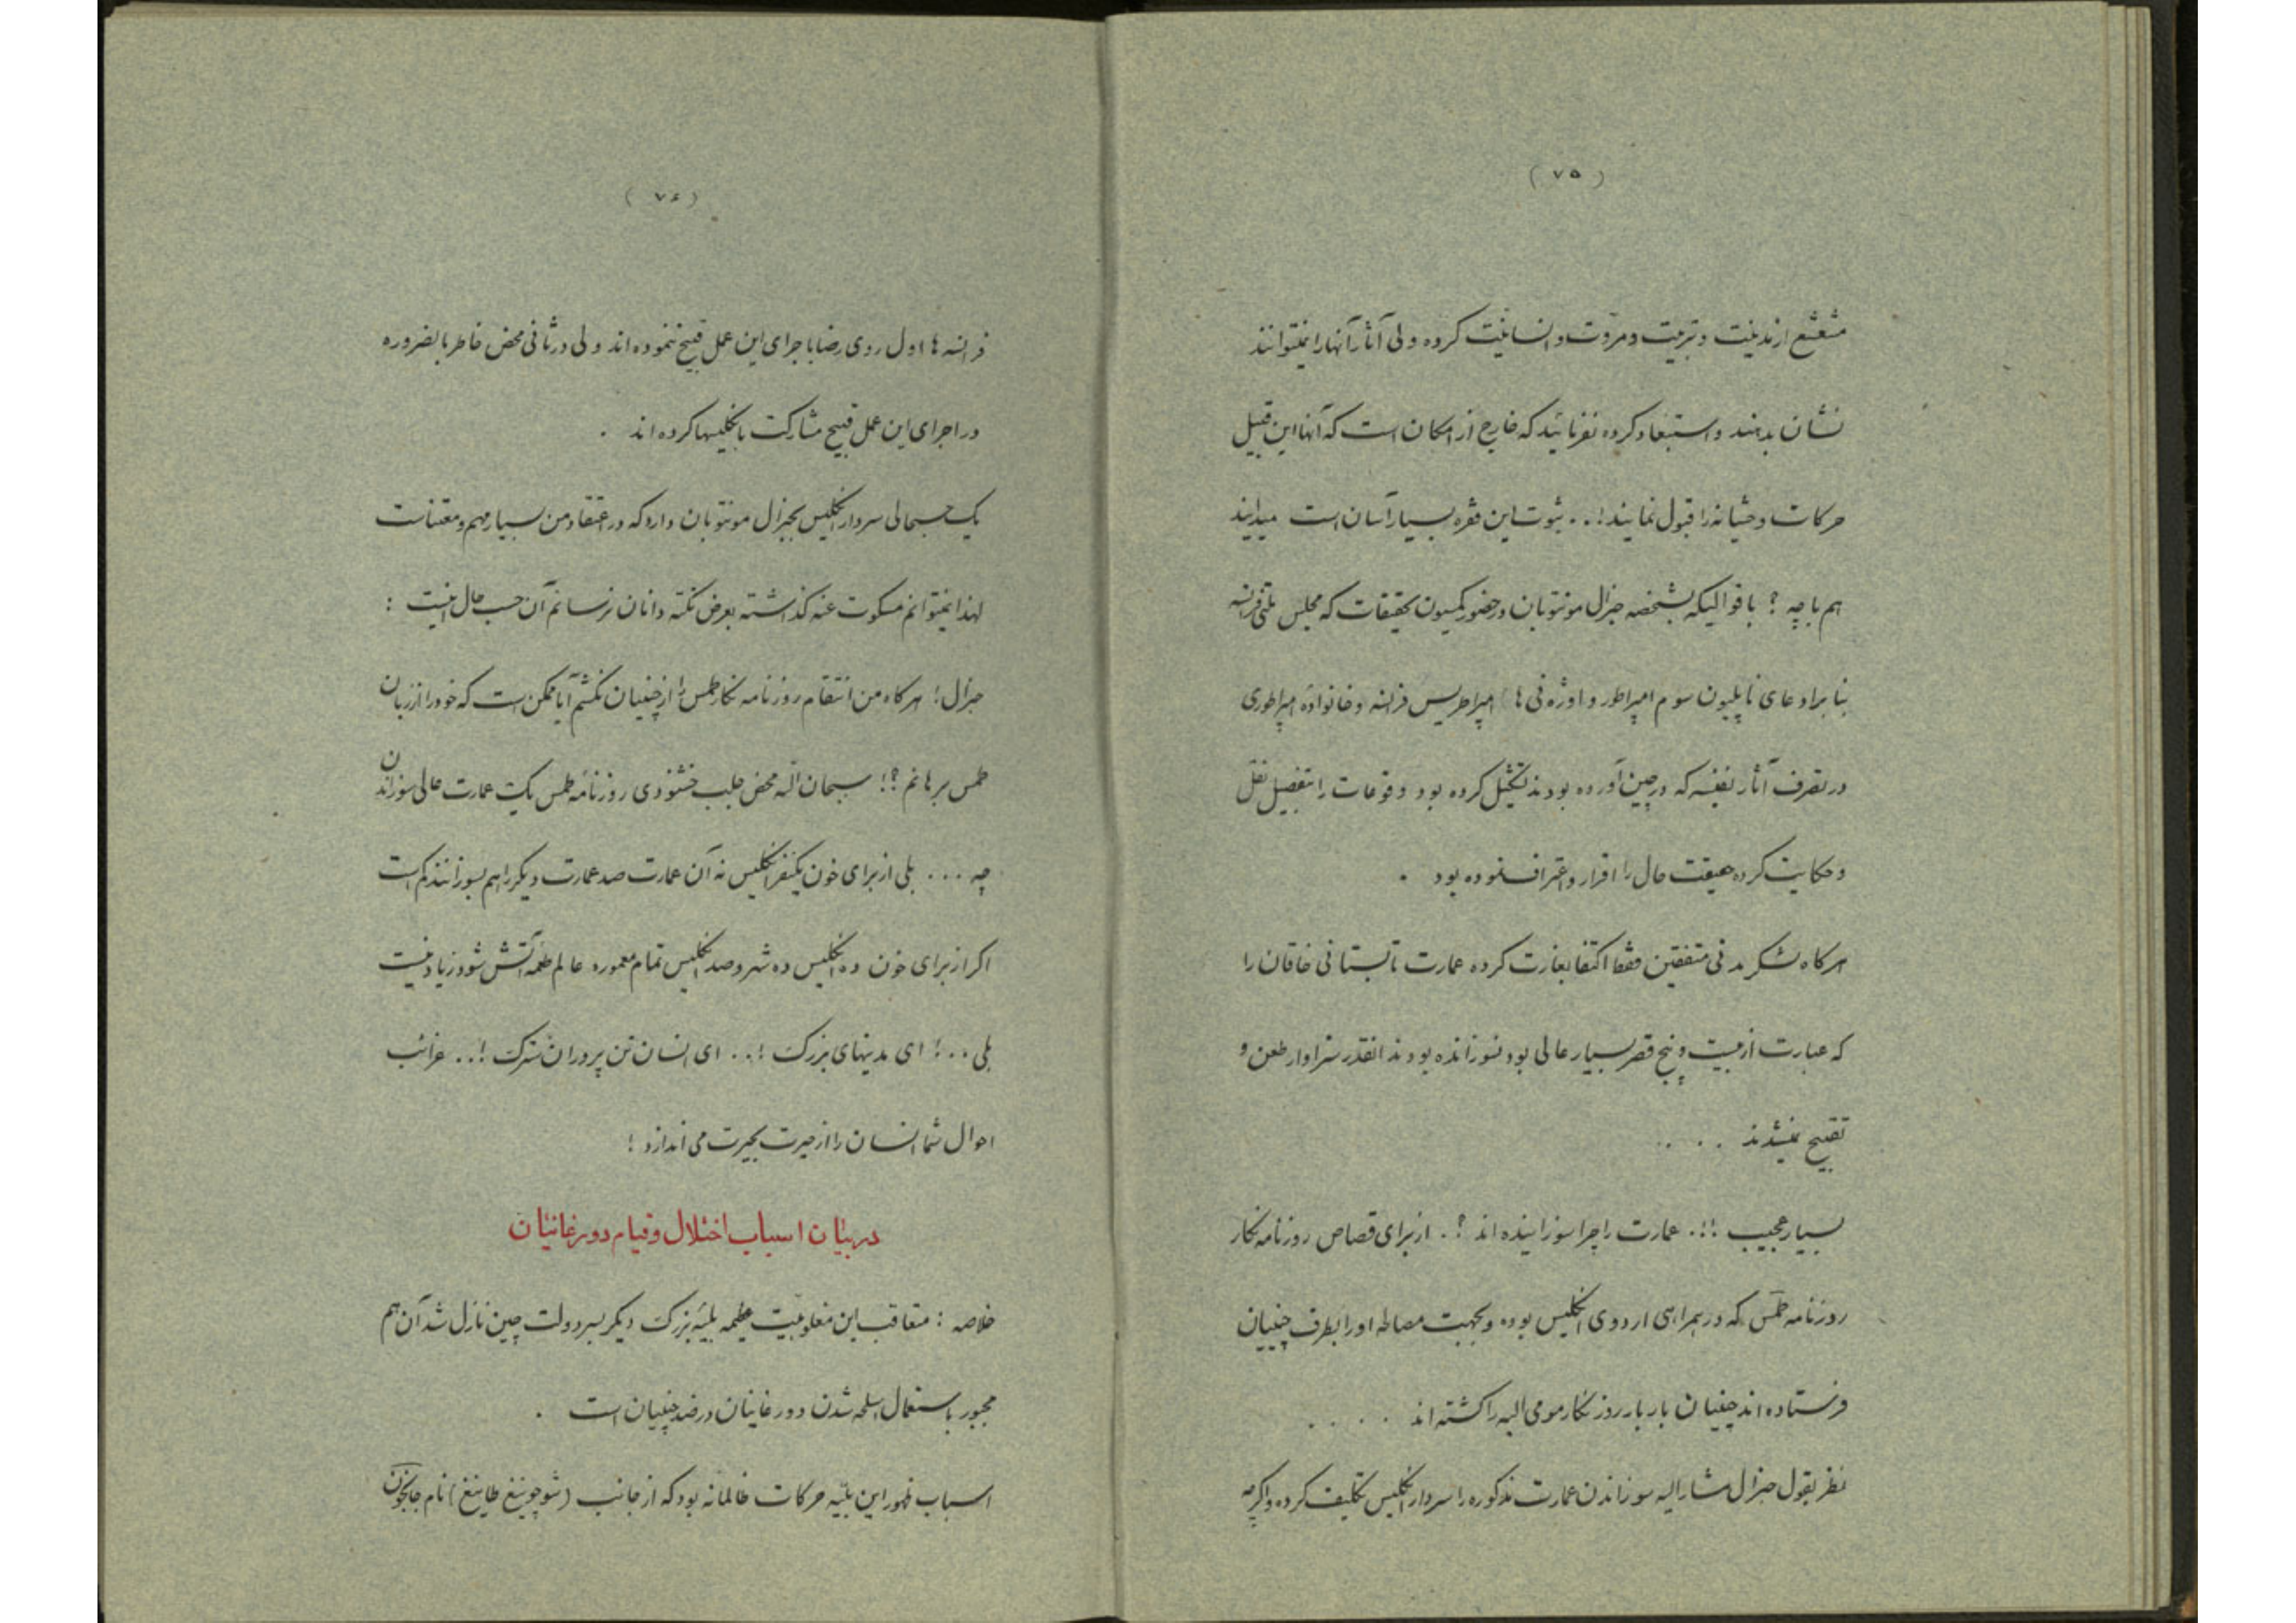 (۷۵)
متمتع از مدنیت و تربیت و مروّت و انسانیّت کرده ولی آثار آنها را نمیتوانند
نشان بدهند و استبعاد کرده نفرمائید که خارج از امکان است که آنها این قبیل
حرکات وحشیانه را قبول نمایند!.. ثبوت این فقره بسیار آسان است میدانید
هم با چه؟ با قوالیکه بشخصه جنرال مونتوبان در حضور کمیسیون تحقیقات که مجلس ملّتی فرانسه
بنا بر ادعای ناپلیون سوم امپراطور و اوژه نی ها) امپراطریس فرانسه و خانوادهٔ امپراطوری
در تصرف آثار نفیسه که در چین آورده بودند تشکیل کرده بود وقوعات را بتفصیل نقل
و حکایت کرده حقیقت حال را اقرار و اعتراف نموده بود .
هر کاه لشکر مدنی متفقین فقط اکتفا بغارت کرده عمارت تابستانی خاقان را
که عبارت از بیست و پنج قصر بسیار عالی بود نسوزانده بودند انقدر سزاوار طعن و
تقبیح نمیشدند . . . .
بسیار عجیب !!. عمارت را چرا سوزانیده اند ؟. از برای قصاص روزنامه نکار
روزنامه طمس که در همراهی اردوی انکلیس بوده و بجهت مصالحه او را بطرف چینیان
فرستاده اند چینیان بار بار روز نکار مومی الیه را کشته اند . . . .
نظر بقول جنرال مشار الیه سوزاندن عمارت مذکوره را سردار انکلیس تکلیف کرده و اکرچه
(۷۶)
فرانسه ها اول روی رضا باجرای این عمل قبیح ننموده اند ولی در ثانی محض خاطر بالضروره
در اجرای این عمل قبیح مشارکت بانکلیسها کرده اند .
یک حسبحالی سردار انکلیس بجنرال مونتوبان دارد که در اعتقاد من بسیار مهم و معتناست
لهذا نمیتوانم مسکوت عنه کذاشته بعرض نکته دانان نرسانم آن حسب حال اینست :
جنرال! هر کاه من انتقام روزنامه نکار طمس را از چینیان نکشم آیا ممکن است که خود را از زبان
طمس برهانم؟! سبحان الله محض جلب خشنودی روزنامه طمس یک عمارت عالی سوزاندن
چه ... بلی از برای خون یکنفر انکلیس نه آن عمارت صد عمارت دیکر را هم بسوزانند کم است
اکر از برای خون ده انکلیس ده شهر و صد انکلیس تمام معموره عالم طعمه آتش شود زیاد نیست
بلی ..! ای مدینهای بزرک !.. ای انسان تن پروران سترک !.. غرائب
احوال شما انسان را از حیرت بحیرت می اندازد !
در بیان اسباب اختلال و قیام دورغانیان
خلاصه : متعاقب این مغلوبیت عظیمه بلیه بزرک دیکر بسر دولت چین نازل شد آن هم
مجبور باستعمال اسلحه شدن دورغانیان در ضد چینیان است .
اسباب ظهور این بلیّه حرکات ظالمانه بود که از جانب (شوچوینغ طاینغ) نام جانجون